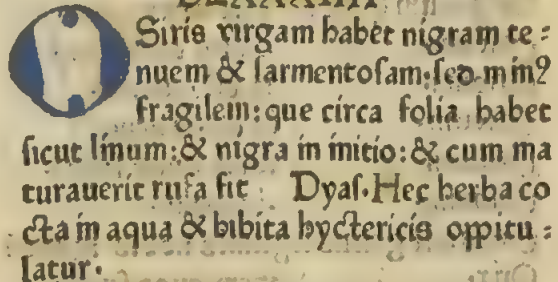 OSiris virgam habet nigram te⸗
nuem & ſarmentoſam·ſed min9
fragilem: que circa folia habet
ſicut linum: & nigra in initio: & cum ma
turauerit rufa fit Dyaſ. Hec herba co
cta in aqua & bibita hyctericis oppitu⸗
latur·